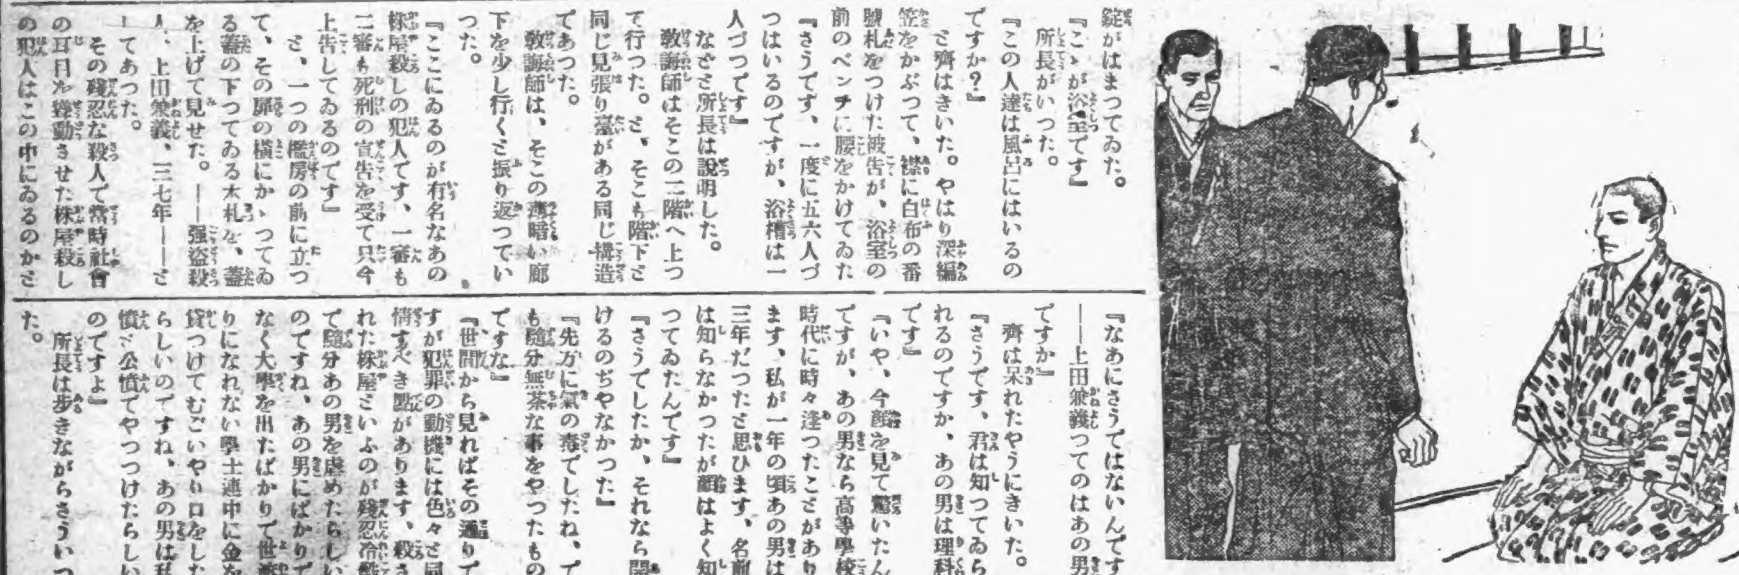 錠がはまつてゐた。
『こゝが浴室です』
所長がいつた。
『この人達は風呂にはいるの
ですか？』
と齊はきいた。やはり深編
笠をかぶつて、襟に白布の番
號札をつけた被告が、浴室の
前のベンチに腰をかけてゐた
『さうです、一度に五六人づ
つはいるのですが、浴槽は一
人づつです』
などと所長は說明した。
敎誨師はそこの二階へ上つ
て行つた。と、そこも階下と
同じ見張り臺がある同じ構造
であつた。
敎誨師は、そこの薄暗い廊
下を少し行くと振り返つてい
つた。
『ここにゐるのが有名なあの
株屋殺しの犯人です、一審も
二審も死刑の宣告を受て只今
上告してゐるのです』
と、一つの檻房の前に立つ
て、その扉の橫にかゝつてゐ
る蓋の下つてゐる木札を、蓋
を上げて見せた。――强盜殺
人、上田兼義、三七年――と
してあつた。
その殘忍な殺人で當時社會
の耳目を聳動させた株屋殺し
の犯人はこの中にゐるのかと
『なあにさうではないんです
――上田兼義つてのはあの男
ですか』
齊は呆れたやうにきいた。
『さうです、君は知つてゐら
れるのですか、あの男は理科
です』
『いや、今顏を見て驚いたん
ですが、あの男なら高等學校
時代に時々逢つたことがあり
ます、私が一年の頃あの男は
三年だつたと思ひます、名前
は知らなかつたが顏はよく知
つてゐたんです』
『さうでしたか、それなら聞
けるのぢやなかつた』
『先方に氣の毒でしたね、で
も隨分無茶な事をやつたもの
ですな』
『世間から見ればその通りで
すが犯罪の動機には色々と同
情すべき點があります、殺さ
れた株屋といふのが殘忍冷酷
で隨分あの男を虐めたらしい
のですね、あの男にばかりで
なく大學を出たばかりで世渡
りになれない學士連中に金を
貸つけてむごいやり口をした
らしいのですね、あの男は私
憤と公憤でやつつけたらしい
のですよ』
所長は步きながらさういつ
た。